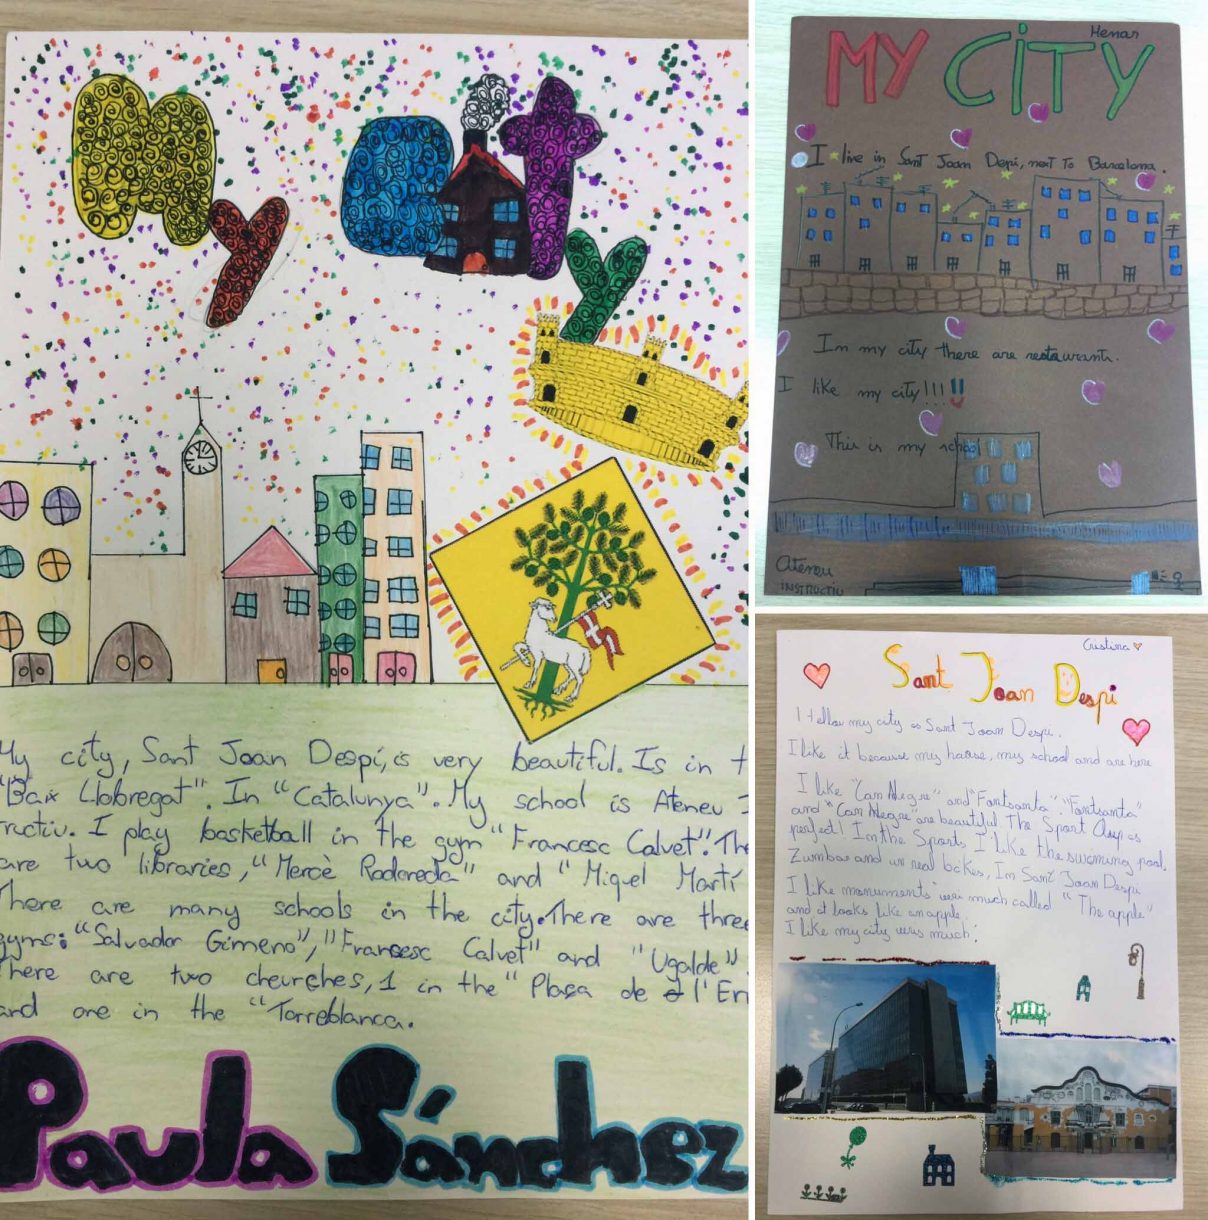 My city
My city, Sant Joan Despí, is very beautiful. Is in t
"Baix Llobregat". In "Catalunya". My school is Ateneu I
tructiu. I play basketball in the gym "Francesc Calvet". The
are two libraries, "Mercè Rodoreda" and "Miqel Martí
There are many schools in the city. There are three
gyms: "Salvador Gimeno", "Francesc Calvet" and "Ugalde".
There are two cheurches, 1 in the "Plaça de l'Er
and one in the "Torreblanca.
Paula Sánchez
Henar
MY CiTY
I live in Sant Joan Despi, next To Barcelona.
In my city there are restaurants.
I like my city!!!
This is my school
Ateneu
INSTRUCTIU
Cristina
Sant Joan Despi
Hellow my city is Sant Joan Despi.
I like it because my hause, my school and are here
I like "Can Negre" and "Fontsanta". "Fontsanta"
and "Can Negre" are beautiful The Sport is
perfect! In the Sports I like the swoming pool,
Zumbas and bikes, In Sant Joan Despi
I like monuments veri much called "The apple"
and it looks like an apple.
I like my city very much.